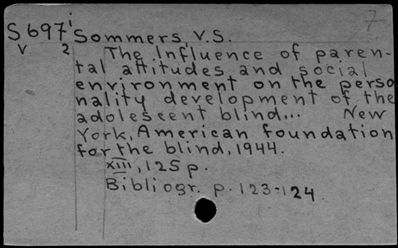 7
S697i Sommers, V.S.
v 2 The Influence of paren-
tal attitudes and social
environment on the perso
nality development of the
adolescent blind... New
York, American foundation
for the blind, 1944.
xiii, 125 p.
Bibliogr. p. 123-124